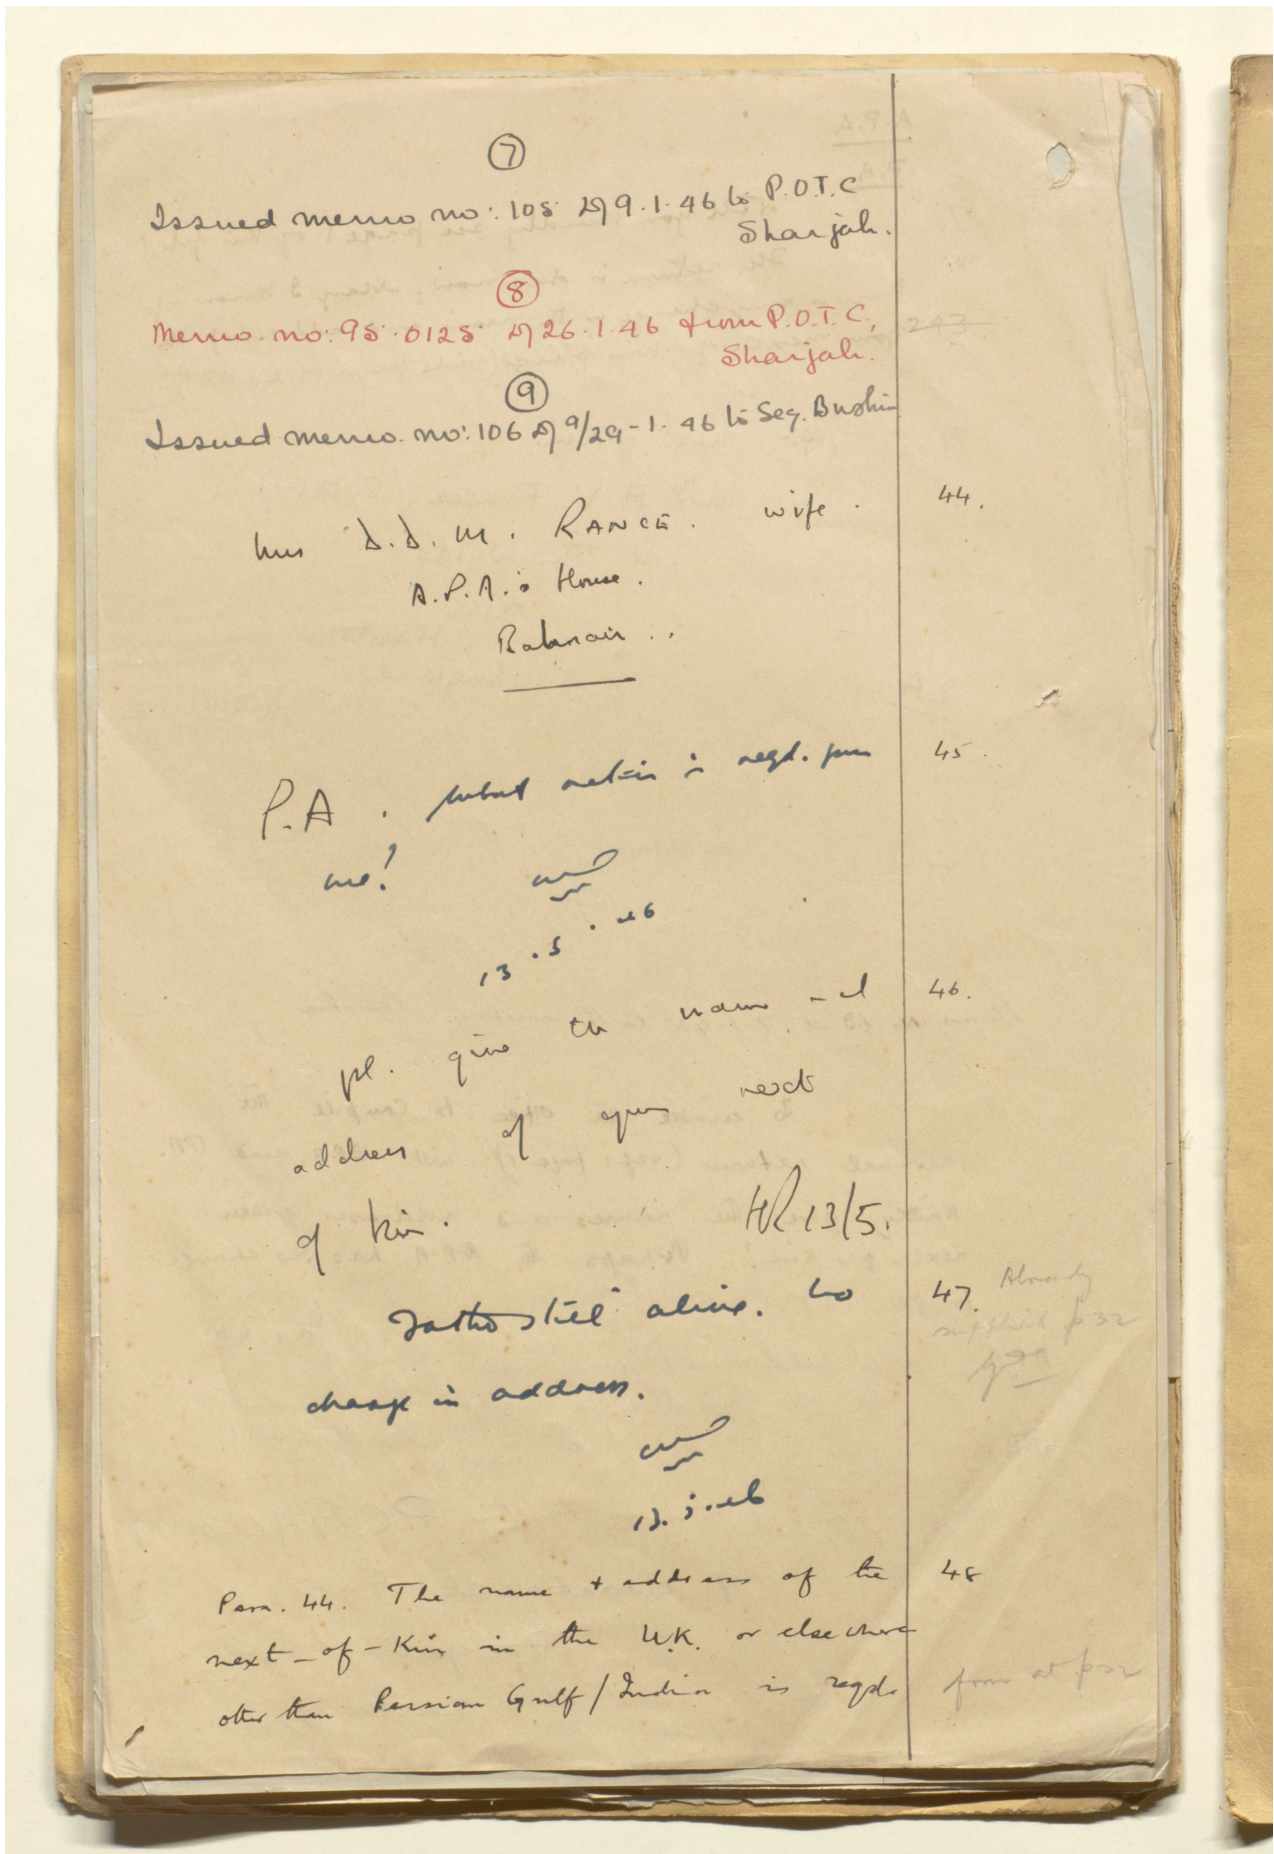 7
Issued memo no: 105 d/ 9.1.46 to P.O.T.C
Sharjah.
8
Memo. no: 95.0125 d/ 26.1.46 from P.O.T.C,
Sharjah.
9
Issued memo. no: 106 d/ 9/29-1.46 to Secy. Bushire
Mrs D.D.M. RANCE. wife. 44.
A.P.A.'s House.
Bahrain..
P.A. What action is reqd. from 45.
me?
13.5.46
pl. give the name and 46.
address of your next
of kin. HR 13/5.
Father still alive. No 47. Already
supplied p 32
change in address.
13.5.46
Para. 44. The name + address of the 48
next-of-Kin in the U.K. or elsewhere
other than Persian Gulf/India is reqd. from at p 32